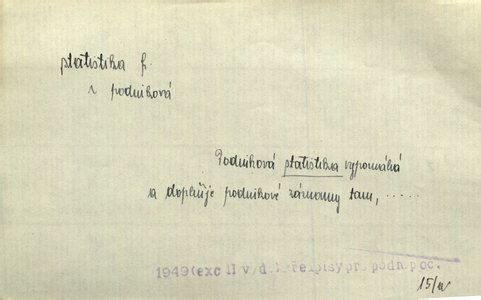 statistika f.
v podniková
Podniková statistika vypomáhá
a doplňuje podnikové záznamy tam, .....
1949 (exc 1) v/d. předpisy pr. podn. poc.
15/